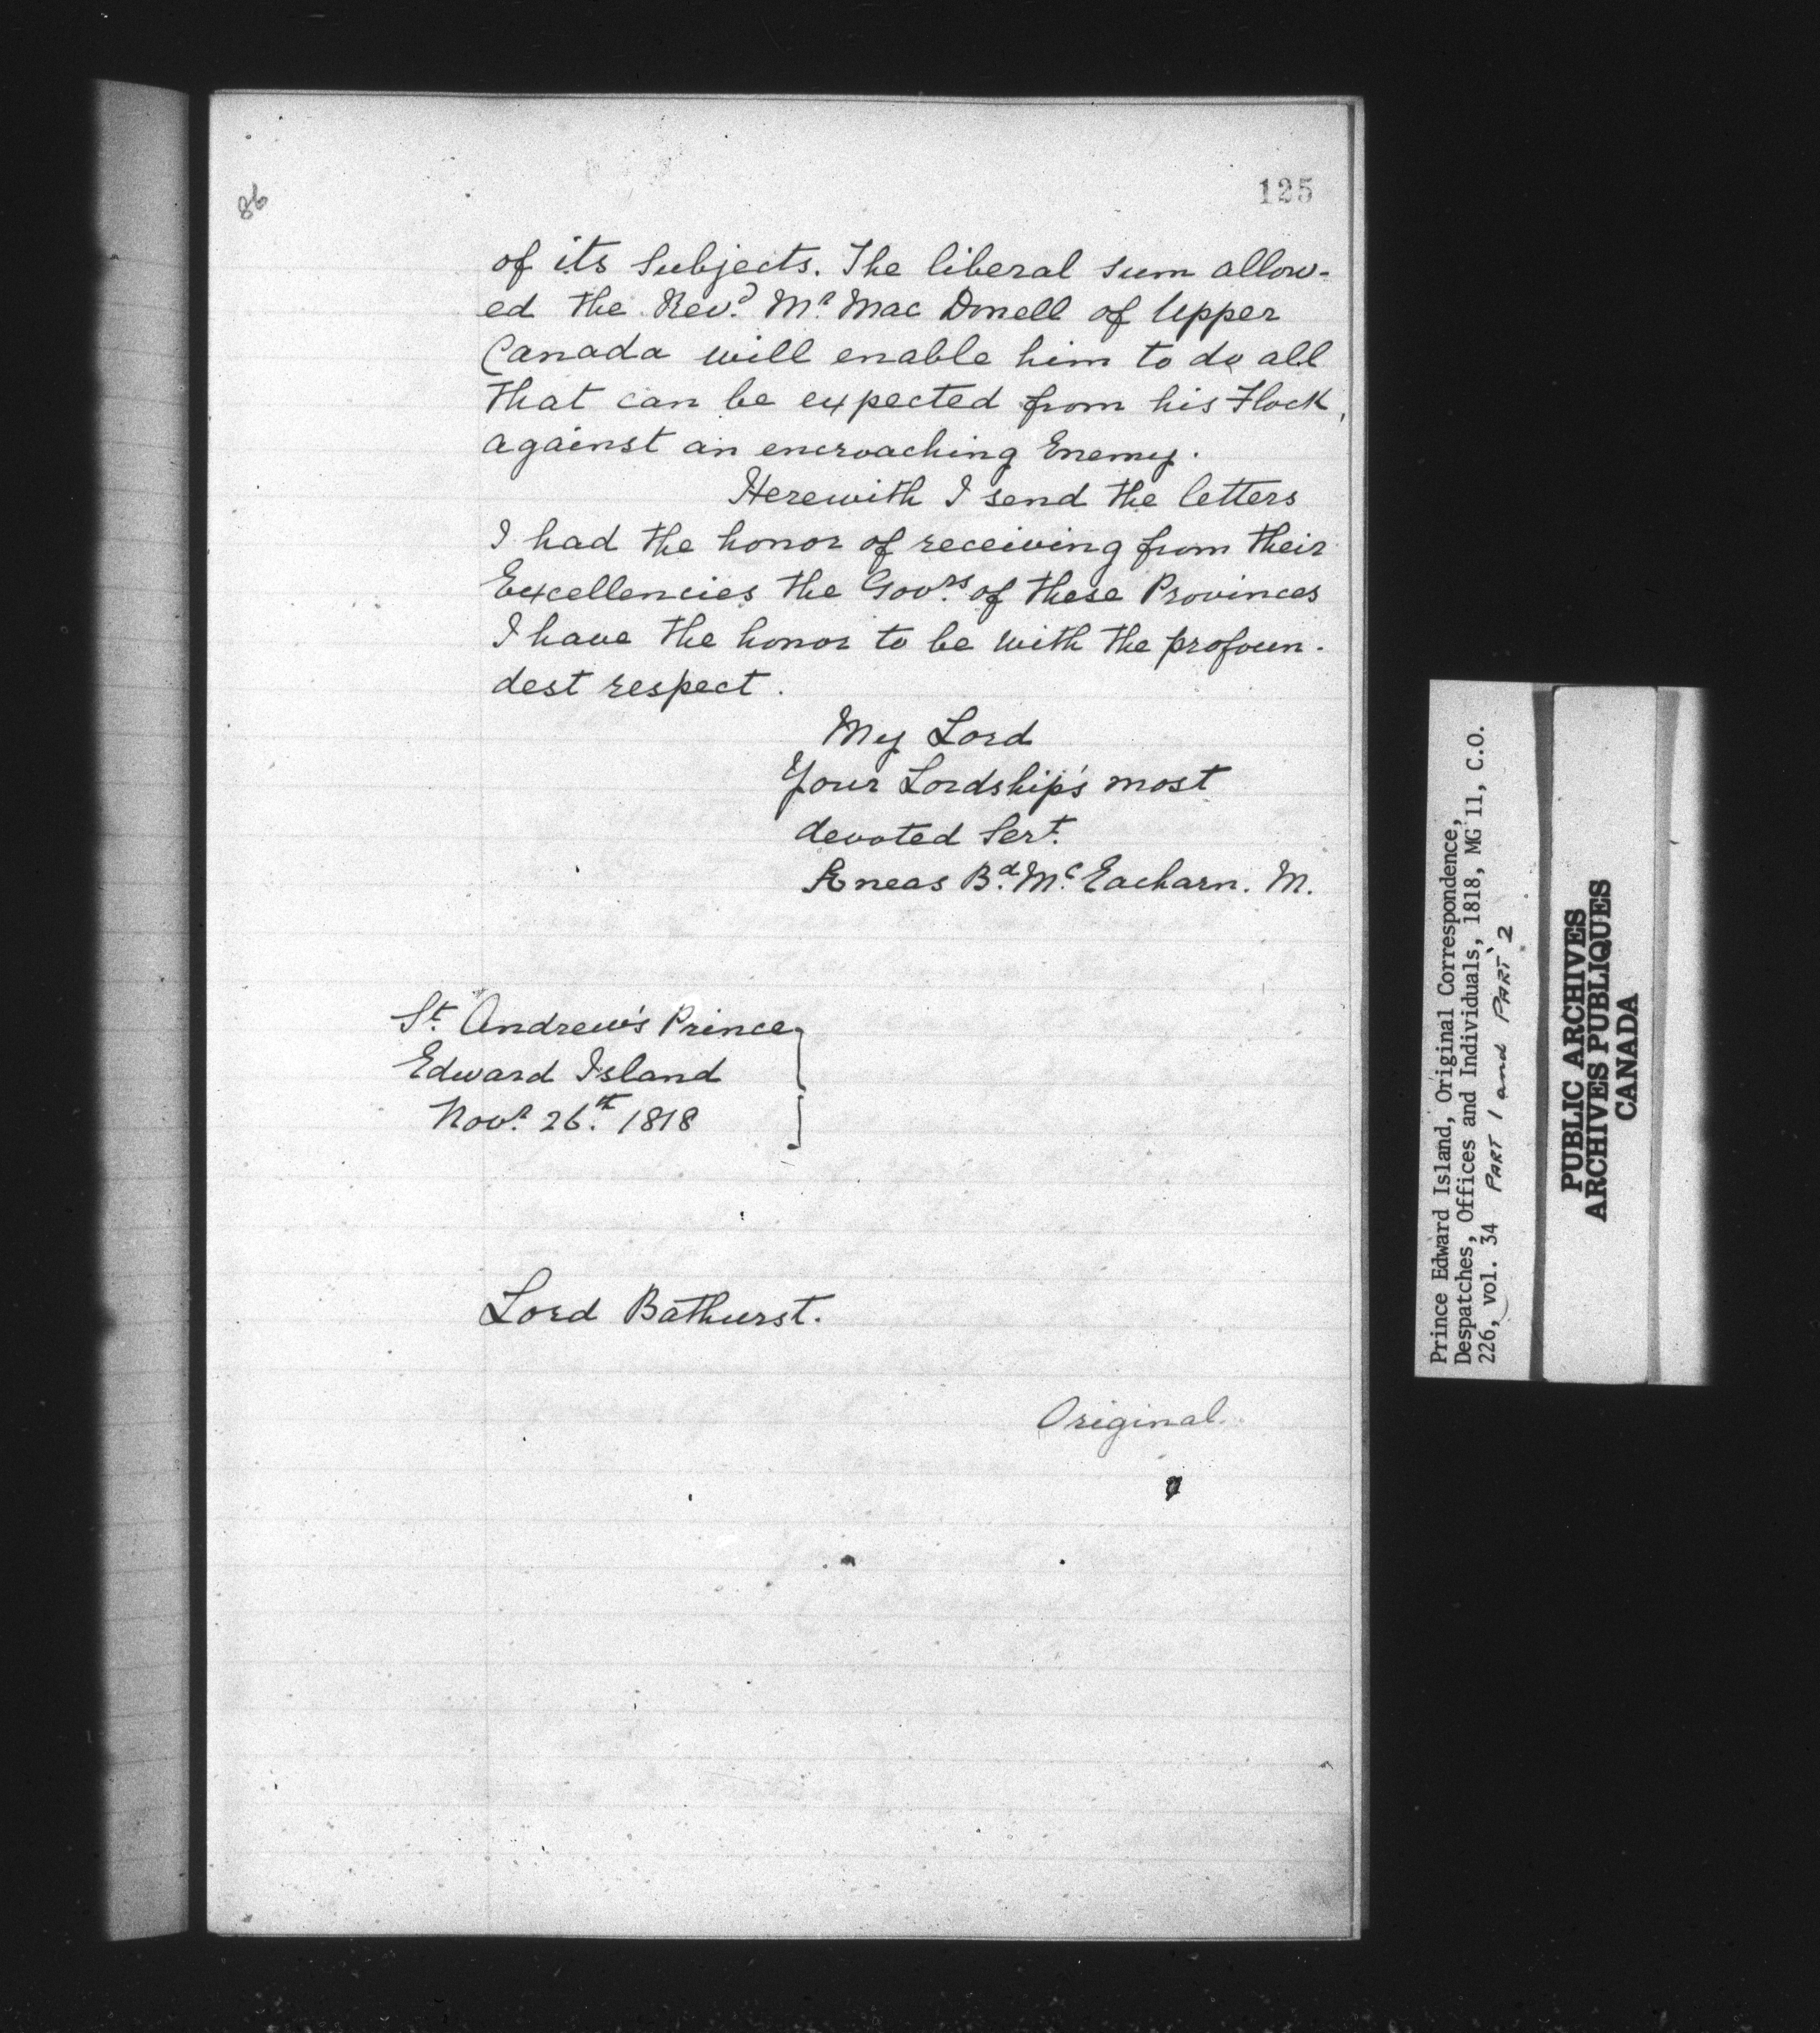 125
86
of its Subjects. The liberal sum allow-
ed the Rev.d Mr. Mac Donell of Upper
Canada will enable him to do all
that can be expected from his Flock,
against an encroaching Enemy.
Herewith I send the letters
I had the honor of receiving from their
Excellencies the Govrs. of these Provinces
I have the honor to be with the profoun-
dest respect.
My Lord
Your Lordship's most
devoted Sert.
Æneas Bd. Mc Eacharn. M.
St. Andrew's Prince
Edward Island
Novr. 26th. 1818
Lord Bathurst.
Original.
Prince Edward Island, Original Correspondence,
Despatches, Offices and Individuals, 1818, MG 11, C.O.
226, vol. 34 PART 1 and PART 2
PUBLIC ARCHIVES
ARCHIVES PUBLIQUES
CANADA